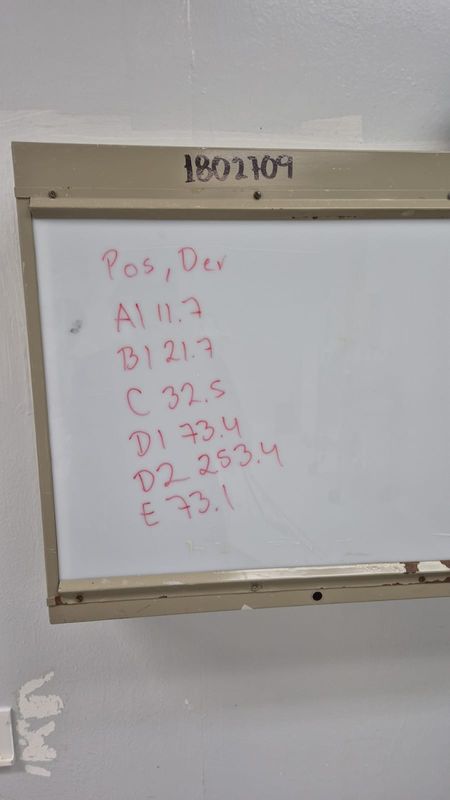 1802709
Pos, Der
A1 11.7
B1 21.7
C 32.5
D1 73.4
D2 253.4
E 73.1